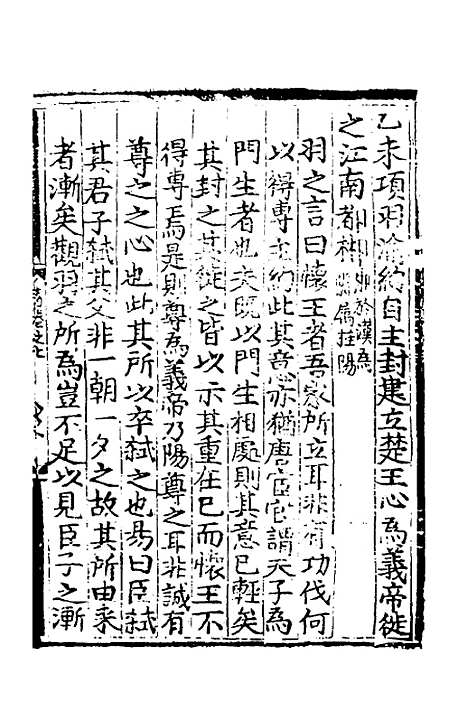 乙未項羽渝約自主封建立楚王心為義帝徙
之江南都郴
於漢為
桂陽
羽之言曰懷王者吾家所立耳非有功伐何
以得專主約此其意亦猶唐宦官謂天子為
門生者也夫既以門生相處則其意已輕矣
其封之其徙之皆以示其重在已而懷王不
得專焉是則尊為義帝乃陽尊之耳非誠有
尊之之心也此其所以卒弑之也易曰臣弑
其君子弑其父非一朝一夕之故其所由来
者漸矣觀羽之所為豈不足以見臣子之漸